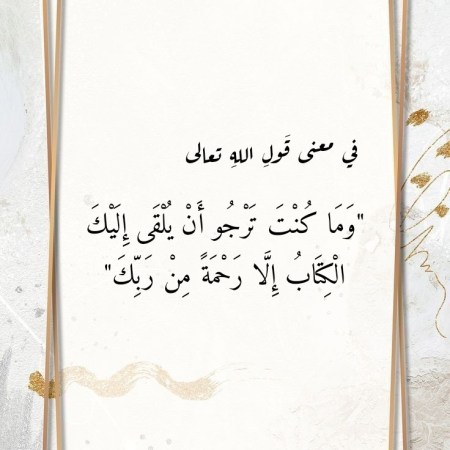 في معنى قَولِ اللهِ تعالى
"وَمَا كُنْتَ تَرْجُو أَنْ يُلْقَى إِلَيْكَ
الْكِتَابُ إِلَّا رَحْمَةً مِنْ رَبِّكَ"